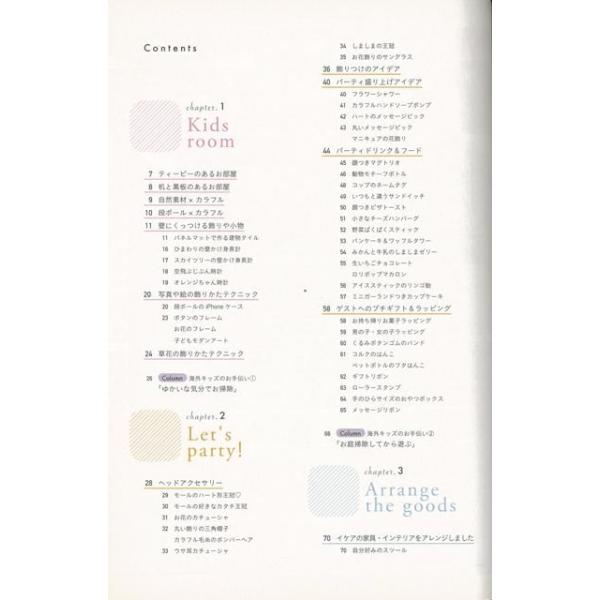 Contents
chapter. 1
Kids
room
7 ティーピーのあるお部屋
8 机と黒板のあるお部屋
9 自然素材×カラフル
10 段ボール×カラフル
11 壁にくっつける飾りや小物
11 パネルマットで作る建物タイル
16 ひまわりの壁かけ身長計
17 スカイツリーの壁かけ身長計
18 空飛ぶじぶん時計
19 オレンジちゃん時計
20 写真や絵の飾りかたテクニック
20 段ボールのiPhoneケース
23 ボタンのフレーム
お花のフレーム
子どもモダンアート
24 草花の飾りかたテクニック
26 Column 海外キッズのお手伝い①
「ゆかいな気分でお掃除」
chapter. 2
Let's
party!
28 ヘッドアクセサリー
29 モールのハート形王冠♡
30 モールの好きなカタチ王冠
31 お花のカチューシャ
32 丸い飾りの三角帽子
カラフル毛糸のボンバーヘア
33 ウサ耳カチューシャ
34 しましまの王冠
35 お花飾りのサングラス
36 飾りつけのアイデア
40 パーティ盛り上げアイデア
40 フラワーシャワー
41 カラフルハンドソープポンプ
42 ハートのメッセージピック
43 丸いメッセージピック
マニキュアの花飾り
44 パーティドリンク&フード
45 顔つきマグトリオ
46 動物モチーフボトル
48 コップのネームタグ
49 いつもと違うサンドイッチ
50 顔つきピザトースト
51 小さなチーズハンバーグ
52 野菜ぱくぱくスティック
53 パンケーキ&ワッフルタワー
54 みかんと牛乳のしましまゼリー
55 生いちごチョコレート
ロリポップマカロン
56 アイススティックのリンゴ飴
57 ミニガーランドつきカップケーキ
58 ゲストへのプチギフト&ラッピング
58 お持ち帰りお菓子ラッピング
59 男の子・女の子ラッピング
60 くるみボタンゴムのバンド
61 コルクのはんこ
ペットボトルのフタはんこ
62 ギフトリボン
63 ローラースタンプ
64 手のひらサイズのおやつボックス
65 メッセージリボン
66 Column 海外キッズのお手伝い②
「お庭掃除してから遊ぶ」
chapter. 3
Arrange
the goods
70 イケアの家具・インテリアをアレンジしました
70 自分好みのスツール